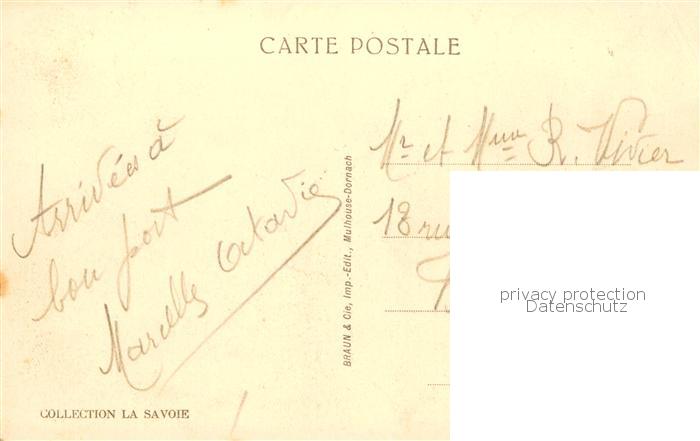 CARTE POSTALE
Arrivées à
bon port
Marcelle Octavie
COLLECTION LA SAVOIE
BRAUN & Cie, Imp.-Edit., Mulhouse-Dornach
Mr et Mme R. Vivier
18 rue
privacy protection
Datenschutz